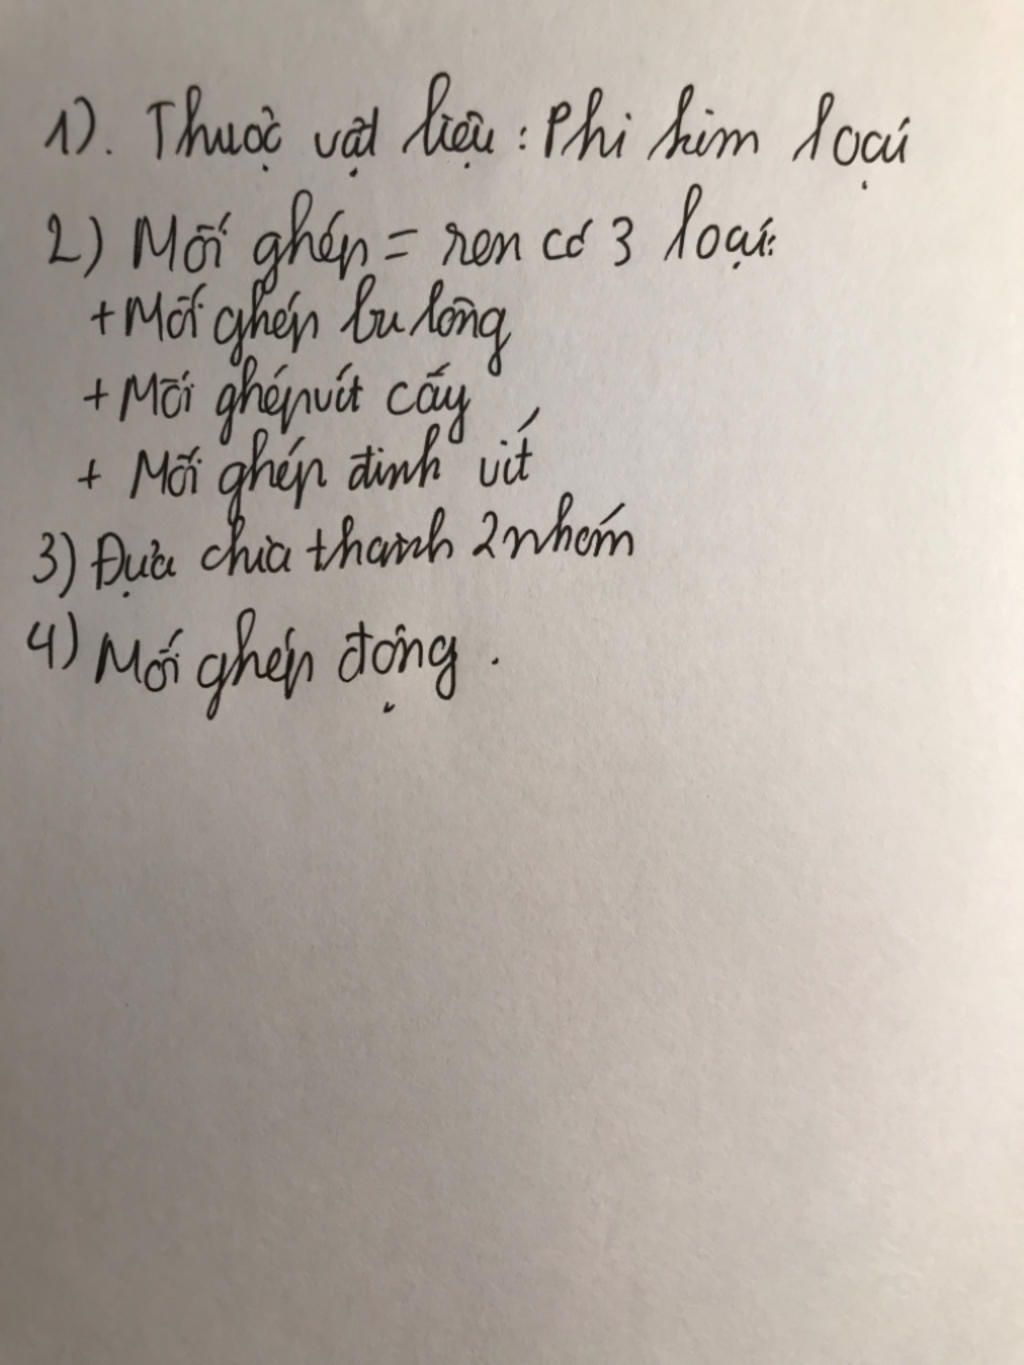 1). Thuộc vật liệu : Phi kim loại
2) Mối ghép = ren có 3 loại:
+ Mối ghép bu lông
+ Mối ghép vít cấy
+ Mối ghép đinh vít
3) Đựa chia thành 2 nhóm
4) Mối ghép động .